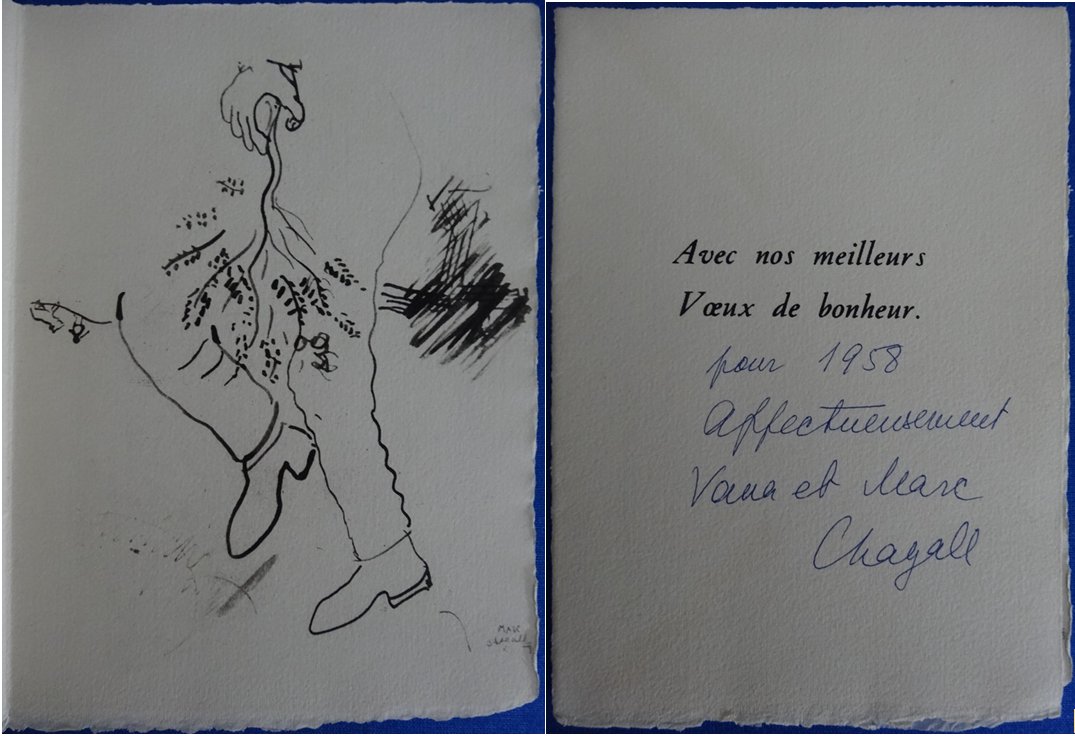 Marc
Chagall
Avec nos meilleurs
Vœux de bonheur.
pour 1958
Affectueusement
Vava et Marc
Chagall